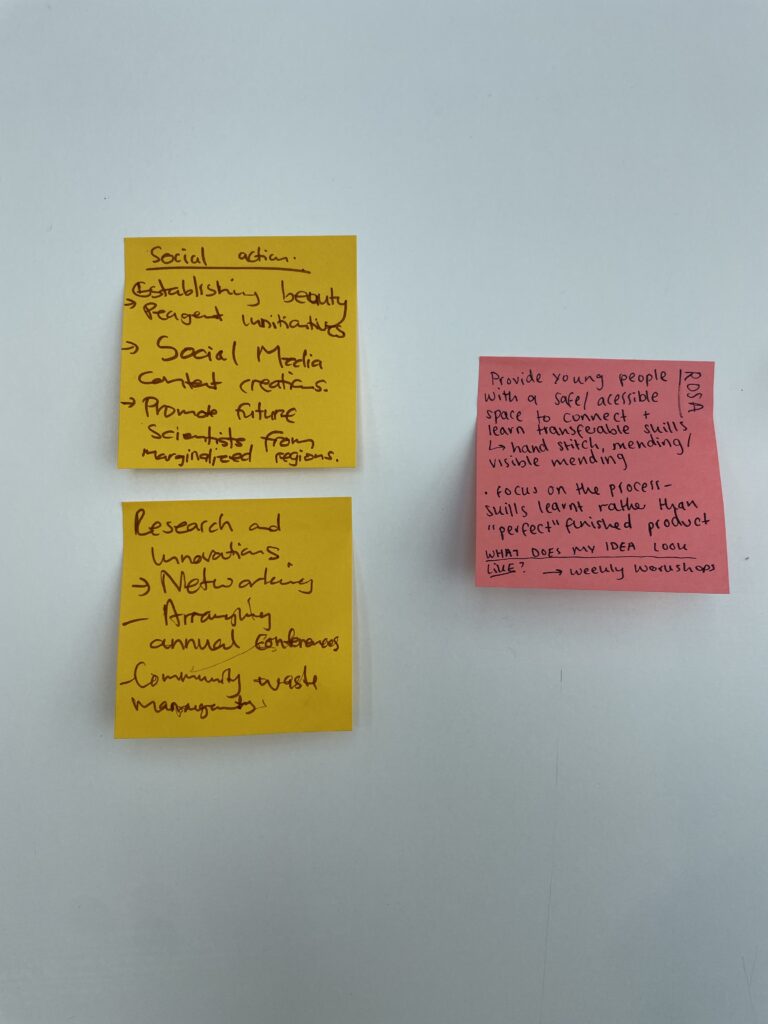 Social action.
Establishing beauty
→ Peagent initiatives
→ Social Media
Content creations.
→ Promote future
Scientists from
marginalized regions.
Research and
innovations
→ Networking
- Arranging
annual Conferences
- Community waste
ROSA
Provide young people
with a safe/acessible
space to connect +
learn transferable skills
↳ hand stitch, mending/
visible mending
• focus on the process-
skills learnt rathe than
"perfect" finished product
WHAT DOES MY IDEA LOOK
LIKE? → weekly workshops